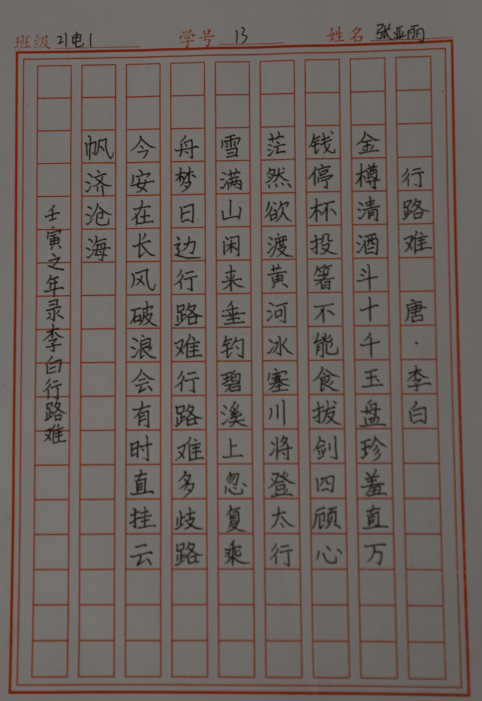 班级 21电1 学号 13 姓名 张亚丽
行路难 唐·李白
金樽清酒斗十千玉盘珍羞直万
钱停杯投箸不能食拔剑四顾心
茫然欲渡黄河冰塞川将登太行
雪满山闲来垂钓碧溪上忽复乘
舟梦日边行路难行路难多歧路
今安在长风破浪会有时直挂云
帆济沧海
壬寅之年录李白行路难